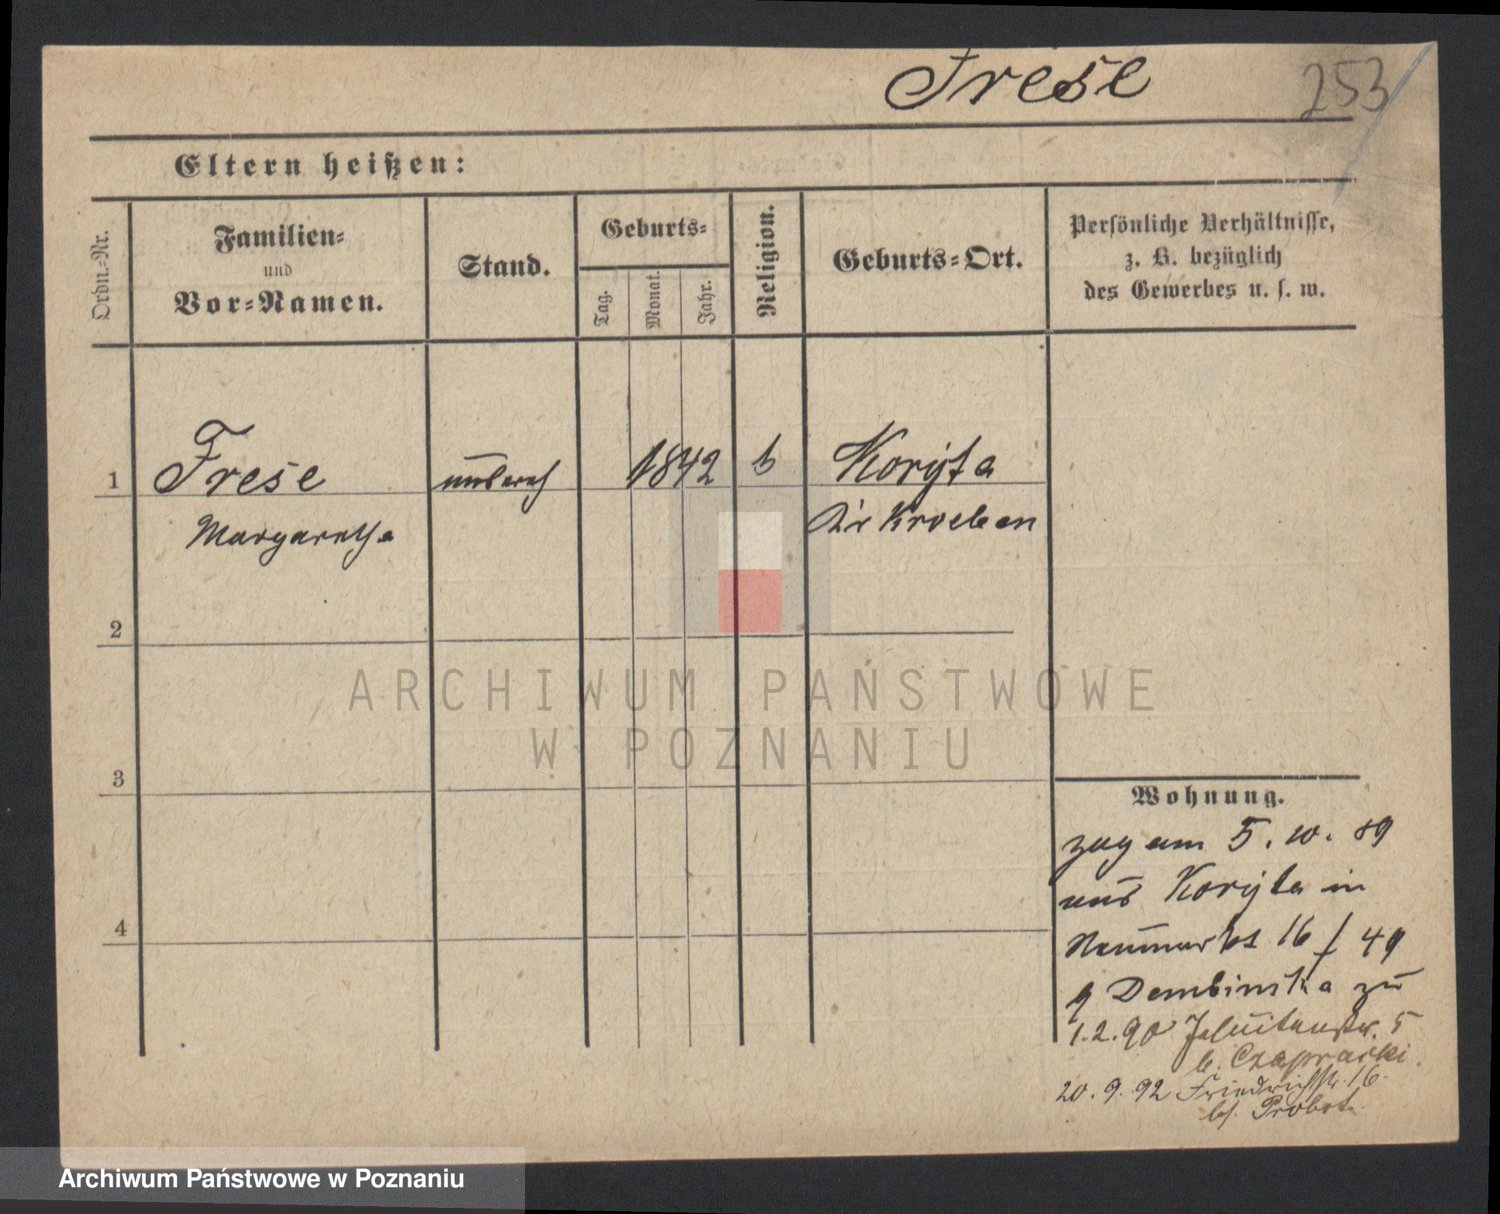 Frese
253
Eltern heißen:
Ordn.-Nr.
Familien-
und
Vor-Namen.
Stand.
Geburts-
Tag.
Monat.
Jahr.
Religion.
Geburts-Ort.
Persönliche Verhältnisse,
z. B. bezüglich
des Gewerbes u. s. w.
1
Frese
Margareth
1842
Koryta
Kr Kroeben
2
3
4
ARCHIWUM PAŃSTWOWE
W POZNANIU
Wohnung.
zug am 5. 10. 89
aus Koryta in
Neumarkt 16 / 49
Dembinska zu
1. 2. 90 Jesuitenstr. 5
b. Czapracki
20. 9. 92 Friedrichstr. 16
bei Probst
Archiwum Państwowe w Poznaniu